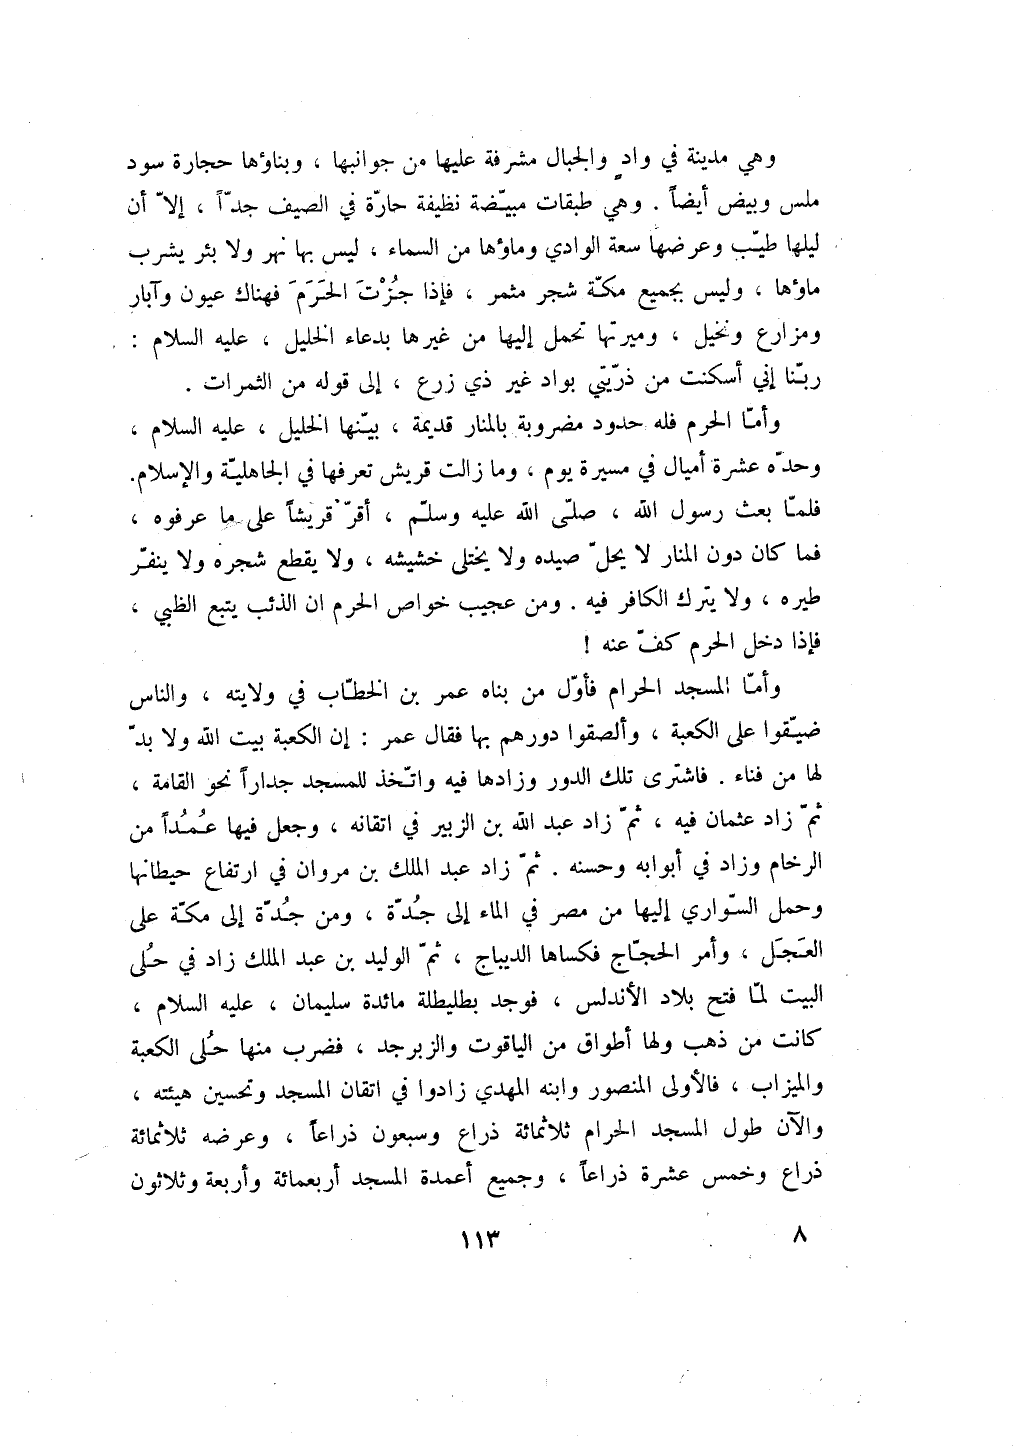 وهي مدينة في وادٍ والجبال مشرفة عليها من جوانبها ، وبناؤها حجارة سود
ملس وبيض أيضاً . وهي طبقات مبيّضة نظيفة حارّة في الصيف جدّاً ، إلاّ أن
ليلها طيّب وعرضها سعة الوادي وماؤها من السماء ، ليس بها نهر ولا بئر يشرب
ماؤها ، وليس بجميع مكّة شجر مثمر ، فإذا جُزْتَ الحَرَمَ فهناك عيون وآبار
ومزارع ونخيل ، وميرتها تحمل إليها من غيرها بدعاء الخليل ، عليه السلام :
ربّنا إني أسكنت من ذرّيتي بواد غير ذي زرع ، إلى قوله من الثمرات .
وأمّا الحرم فله حدود مضروبة بالمنار قديمة ، بيّنها الخليل ، عليه السلام ،
وحدّه عشرة أميال في مسيرة يوم ، وما زالت قريش تعرفها في الجاهليّة والإسلام.
فلمّا بعث رسول الله ، صلّى الله عليه وسلّم ، أقرّ قريشاً على ما عرفوه ،
فما كان دون المنار لا يحلّ صيده ولا يختلى خشيشه ، ولا يقطع شجره ولا ينفّر
طيره ، ولا يترك الكافر فيه . ومن عجيب خواص الحرم ان الذئب يتبع الظبي ،
فإذا دخل الحرم كفّ عنه !
وأمّا المسجد الحرام فأوّل من بناه عمر بن الخطّاب في ولايته ، والناس
ضيّقوا على الكعبة ، وألصقوا دورهم بها فقال عمر : إن الكعبة بيت الله ولا بدّ
لها من فناء . فاشترى تلك الدور وزادها فيه واتّخذ للمسجد جداراً نحو القامة ،
ثمّ زاد عثمان فيه ، ثمّ زاد عبد الله بن الزبير في اتقانه ، وجعل فيها عُمُداً من
الرخام وزاد في أبوابه وحسنه . ثمّ زاد عبد الملك بن مروان في ارتفاع حيطانها
وحمل السّواري إليها من مصر في الماء إلى جُدّة ، ومن جُدّة إلى مكّة على
العَجَل ، وأمر الحجّاج فكساها الديباج ، ثمّ الوليد بن عبد الملك زاد في حُلى
البيت لمّا فتح بلاد الأندلس ، فوجد بطليطلة مائدة سليمان ، عليه السلام ،
كانت من ذهب ولها أطواق من الياقوت والزبرجد ، فضرب منها حُلى الكعبة
والميزاب ، فالأولى المنصور وابنه المهدي زادوا في اتقان المسجد وتحسين هيئته ،
والآن طول المسجد الحرام ثلاثمائة ذراع وسبعون ذراعاً ، وعرضه ثلاثمائة
ذراع وخمس عشرة ذراعاً ، وجميع أعمدة المسجد أربعمائة وأربعة وثلاثون
١١٣ ٨